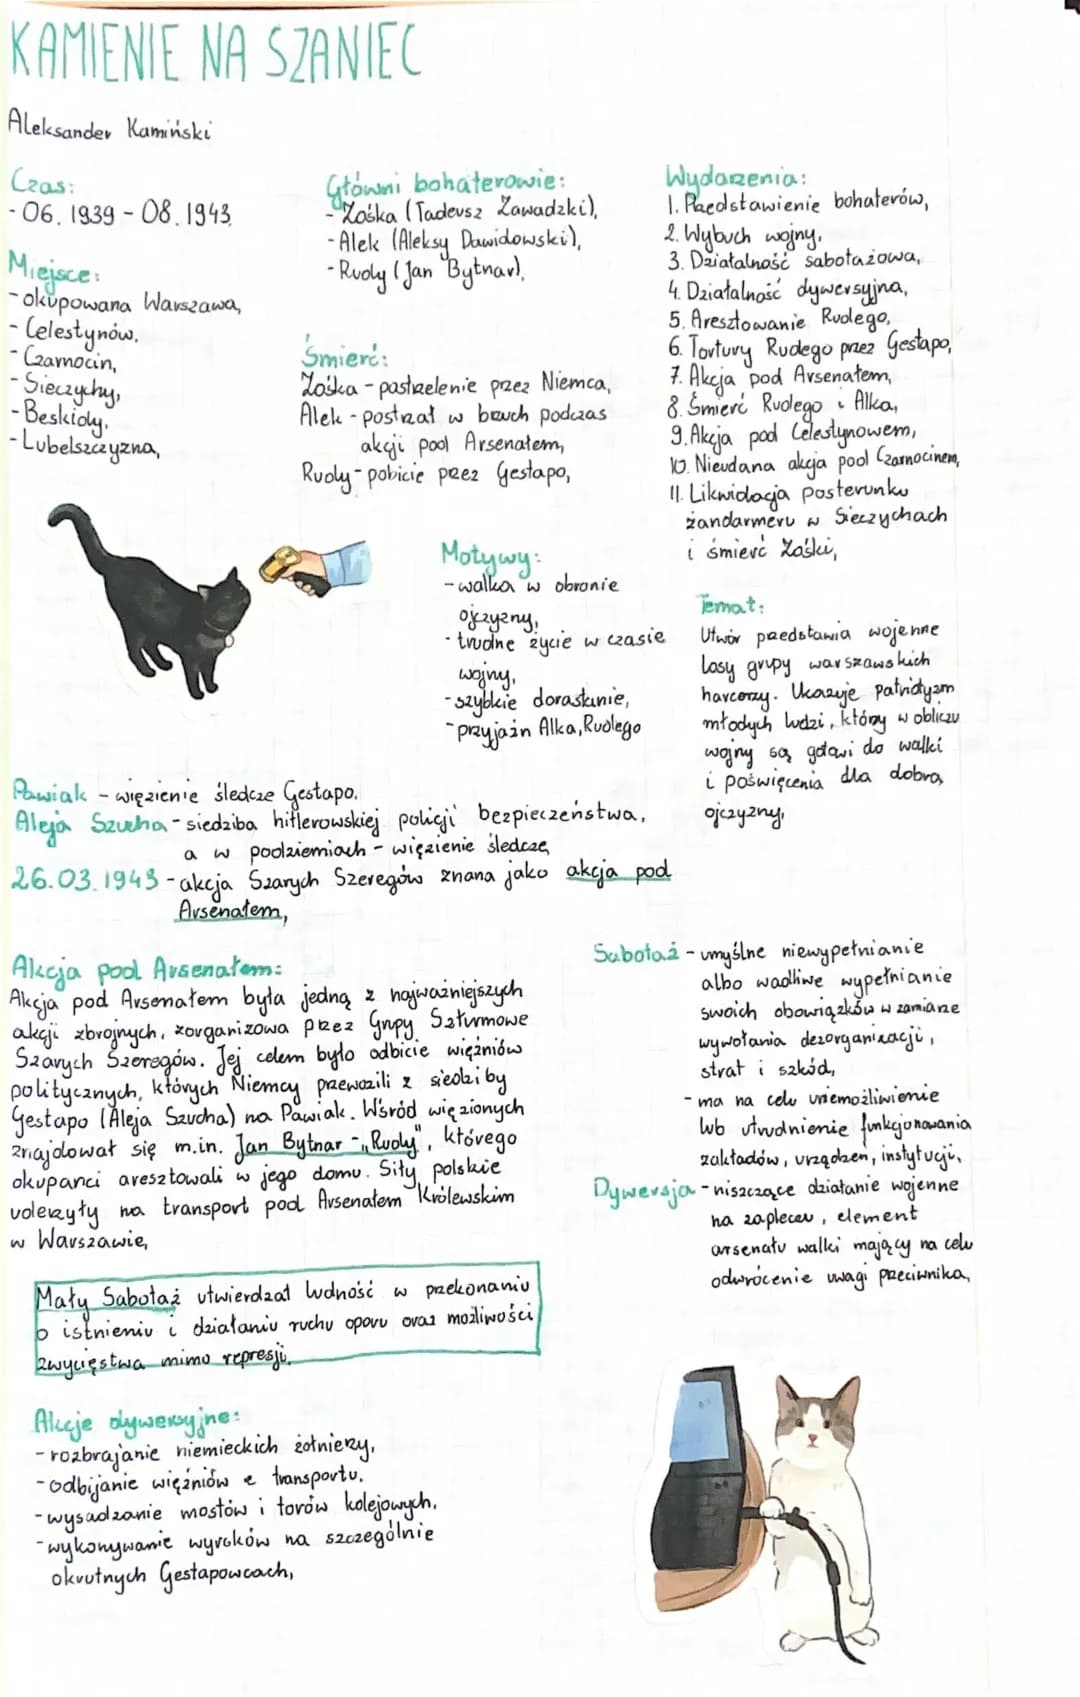 KAMIENIE NA SZANIEC
Aleksander Kamiński
Czas:
- 06. 1939 - 08. 1943.
Miejsce:
- okupowana Warszawa,
- Celestynów,
- Czarnocin,
- Sieczychy,
- Beskidy,
- Lubelszczyzna,
Główni bohaterowie:
- Zośka (Tadeusz Zawadzki),
- Alek (Aleksy Dawidowski),
- Rudy (Jan Bytnar),
Śmierć:
Zośka - postrzelenie przez Niemca,
Alek - postrzał w brzuch podczas
akcji pod Arsenałem,
Rudy - pobicie przez Gestapo,
Motywy:
- walka w obronie
ojczyzny,
- trudne życie w czasie
wojny,
- szybkie dorastanie,
- przyjaźń Alka, Rudego
Wydarzenia:
1. Przedstawienie bohaterów,
2. Wybuch wojny,
3. Działalność sabotażowa,
4. Działalność dywersyjna,
5. Aresztowanie Rudego,
6. Tortury Rudego przez Gestapo,
7. Akcja pod Arsenałem,
8. Śmierć Rudego i Alka,
9. Akcja pod Celestynowem,
10. Nieudana akcja pod Czarnocinem,
11. Likwidacja posterunku
żandarmeru w Sieczychach
i śmierć Zośki,
Temat:
Utwór przedstawia wojenne
losy grupy warszawskich
harcerzy. Ukazuje patriotyzm
młodych ludzi, którzy w obliczu
wojny są gotowi do walki
i poświęcenia dla dobra
ojczyzny,
Pawiak - więzienie śledcze Gestapo,
Aleja Szucha - siedziba hitlerowskiej policji bezpieczeństwa,
a w podziemiach - więzienie śledcze,
26.03.1943 - akcja Szarych Szeregów znana jako akcja pod
Arsenałem,
Akcja pod Arsenałem:
Akcja pod Arsenałem była jedną z najważniejszych
akcji zbrojnych, zorganizowa przez Grupy Szturmowe
Szarych Szeregów. Jej celem było odbicie więźniów
politycznych, których Niemcy przewozili z siedziby
Gestapo (Aleja Szucha) na Pawiak. Wśród więzionych
znajdował się m.in. Jan Bytnar - „Rudy", którego
okupanci aresztowali w jego domu. Siły polskie
uderzyły na transport pod Arsenałem Królewskim
w Warszawie,
Sabotaż - umyślne niewypełnianie
albo wadliwe wypełnianie
swoich obowiązków w zamiarze
wywołania dezorganizacji,
strat i szkód,
- ma na celu uniemożliwienie
lub utrudnienie funkcjonowania
zakładów, urządzeń, instytucji,
Dywersja - niszczące działanie wojenne
na zapleczu, element
arsenału walki mający na celu
odwrócenie uwagi przeciwnika,
Mały Sabotaż utwierdzał ludność w przekonaniu
o istnieniu i działaniu ruchu oporu oraz możliwości
zwycięstwa mimo represji.
Akcje dywersyjne:
- rozbrajanie niemieckich żołnierzy,
- odbijanie więźniów z transportu,
- wysadzanie mostów i torów kolejowych,
- wykonywanie wyroków na szczególnie
okrutnych Gestapowcach,